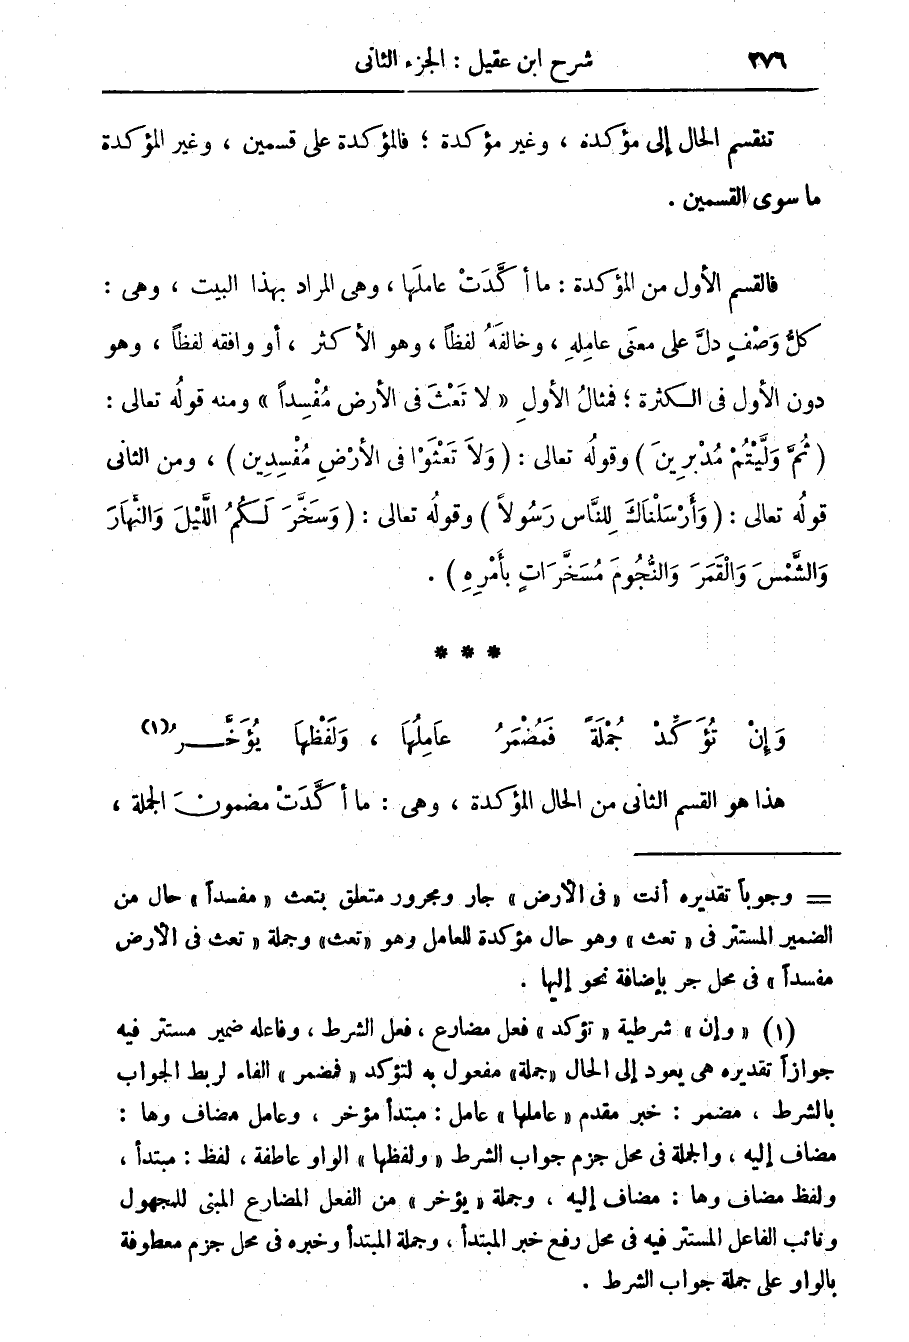 ٢٧٦ شرح ابن عقيل : الجزء الثانى
تنقسم الحال إلى مؤكدة ، وغير مؤكدة ؛ فالمؤكدة على قسمين ، وغير المؤكدة
ما سوى القسمين .
فالقسم الأول من المؤكدة : ما أكَّدَتْ عاملَها ، وهى المراد بهذا البيت ، وهى :
كلُّ وَصْفٍ دلَّ على معنَى عامِلِهِ ، وخالفَهُ لفظاً ، وهو الأكثر ، أو وافقه لفظاً ، وهو
دون الأول فى الكثرة ؛ فمثالُ الأولِ « لا تَعْثَ فى الأرض مُفْسِداً » ومنه قولُه تعالى :
( ثُمَّ وَلَّيْتُمْ مُدْبِرِينَ ) وقولُه تعالى : ( وَلاَ تَعْثَوْا فى الأرْضِ مُفْسِدِين ) ، ومن الثانى
قولُه تعالى : ( وَأَرْسَلْنَاكَ لِلنَّاس رَسُولاً ) وقولُه تعالى : ( وَسَخَّرَ لَكُمُ اللَّيْلَ وَالنَّهَارَ
وَالشَّمْسَ وَالْقَمَرَ وَالنُّجُومَ مُسَخَّرَاتٍ بأَمْرِهِ ) .
* * *
وَإِنْ تُؤَكِّدْ جُمْلَةً فَمُضْمَرُ عَامِلُهَا ، وَلَفْظُهَا يُؤَخَّرُ (١)
هذا هو القسم الثانى من الحال المؤكدة ، وهى : ما أكَّدَتْ مضمونَ الجملة ،
= وجوباً تقديره أنت « فى الأرض » جار ومجرور متعلق بتعث « مفسداً » حال من
الضمير المستتر فى « تعث » وهو حال مؤكدة للعامل وهو «تعث» وجملة « تعث فى الأرض
مفسداً » فى محل جر بإضافة نحو إليها .
(١) « وإن » شرطية « تؤكد » فعل مضارع ، فعل الشرط ، وفاعله ضمير مستتر فيه
جوازاً تقديره هى يعود إلى الحال «جملة» مفعول به لتؤكد « فمضمر » الفاء لربط الجواب
بالشرط ، مضمر : خبر مقدم « عاملها » عامل : مبتدأ مؤخر ، وعامل مضاف وها :
مضاف إليه ، والجملة فى محل جزم جواب الشرط « ولفظها » الواو عاطفة ، لفظ : مبتدأ ،
ولفظ مضاف وها : مضاف إليه ، وجملة « يؤخر » من الفعل المضارع المبنى للمجهول
ونائب الفاعل المستتر فيه فى محل رفع خبر المبتدأ ، وجملة المبتدأ وخبره فى محل جزم معطوفة
بالواو على جملة جواب الشرط .